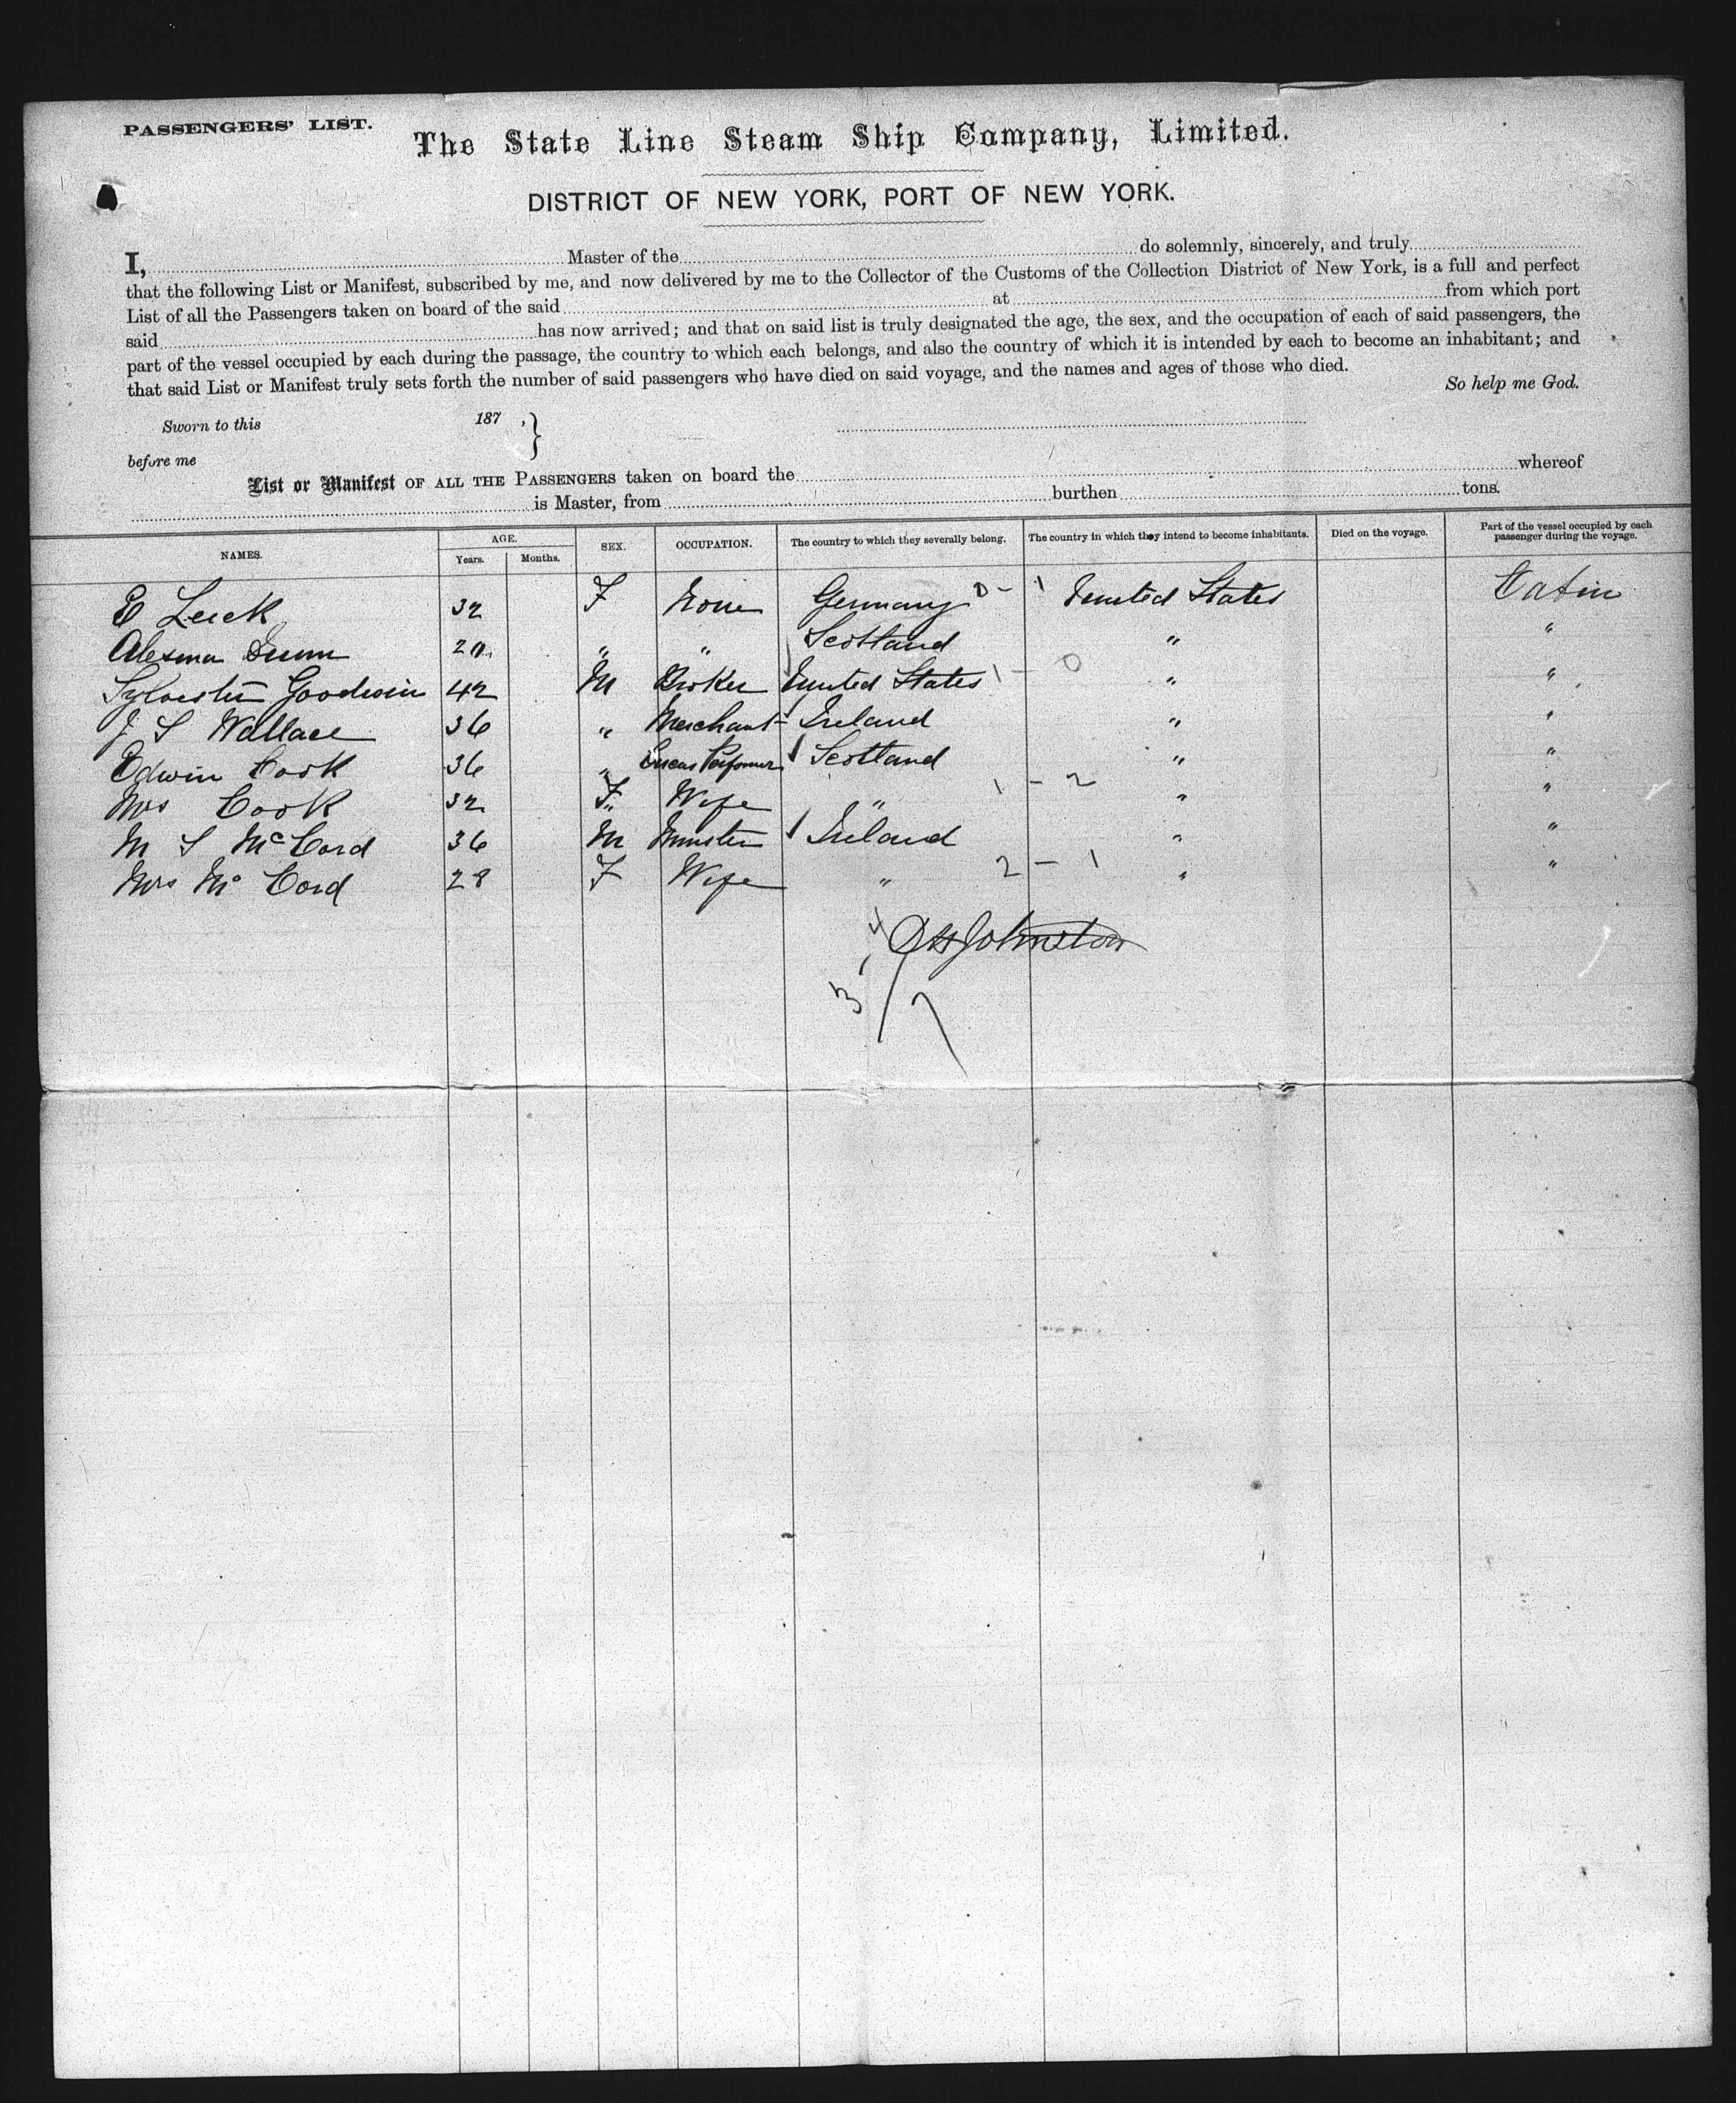 PASSENGERS' LIST.
The State Line Steam Ship Company, Limited.
DISTRICT OF NEW YORK, PORT OF NEW YORK.
I, Master of the do solemnly, sincerely, and truly
that the following List or Manifest, subscribed by me, and now delivered by me to the Collector of the Customs of the Collection District of New York, is a full and perfect
List of all the Passengers taken on board of the said at from which port
said has now arrived; and that on said list is truly designated the age, the sex, and the occupation of each of said passengers, the
part of the vessel occupied by each during the passage, the country to which each belongs, and also the country of which it is intended by each to become an inhabitant; and
that said List or Manifest truly sets forth the number of said passengers who have died on said voyage, and the names and ages of those who died.
So help me God.
Sworn to this 187 ,}
before me
List or Manifest OF ALL THE PASSENGERS taken on board the whereof
is Master, from burthen tons.
NAMES. AGE. Years. Months. SEX. OCCUPATION. The country to which they severally belong. The country in which they intend to become inhabitants. Died on the voyage. Part of the vessel occupied by each passenger during the voyage.
E Leick 32 F None Germany 0 - 1 United States Cabin
20 " " Scotland " "
Sylvester Goodwin 42 M Broker United States 1 - 0 " "
J S Wallace 36 " Merchant Ireland " "
Edwin Cook 36 " Circus Performer Scotland " "
Mrs Cook 32 F Wife " 1 - 2 " "
M S McCord 36 M Minister Ireland " "
Mrs McCord 28 F Wife " 2 - 1 " "
Johnston
4
3 / 7